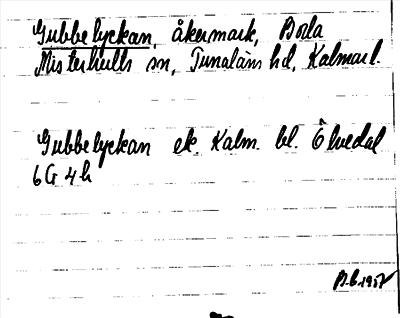 Gubbelyckan, åkermark, Boda
Misterhults sn, Tunaläns hd, Kalmar l.
Gubbelyckan ek. Kalm. bl. Ölvedal
6G 4h
B.G. 1957